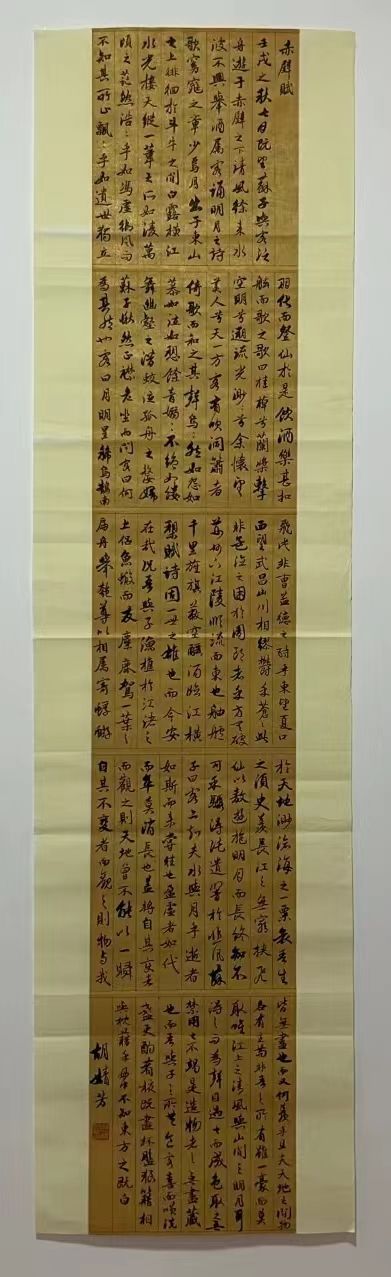 赤壁賦
壬戌之秋七月既望蘇子與客泛
舟遊于赤壁之下清風徐來水
波不興舉酒屬客誦明月之詩
歌窈窕之章少焉月出于東山
之上徘徊於斗牛之間白露橫江
水光接天縱一葦之所如凌萬
頃之茫然浩〻乎如馮虛御風而
不知其所止飄〻乎如遺世獨立
羽化而登仙於是飲酒樂甚扣
舷而歌之歌曰桂棹兮蘭槳擊
空明兮遡流光渺〻兮余懷望
美人兮天一方客有吹洞簫者
倚歌而和之其聲嗚〻然如怨如
慕如泣如愬餘音嫋〻不絕如縷
舞幽壑之潛蛟泣孤舟之嫠婦
蘇子愀然正襟危坐而問客曰何
為其然也客曰月明星稀烏鵲南
飛此非曹孟德之詩乎東望夏口
西望武昌山川相繆鬱乎蒼〻此
非孟德之困於周郎者乎方其破
荊州下江陵順流而東也舳艫
千里旌旗蔽空釃酒臨江橫
槊賦詩固一世之雄也而今安
在哉況吾與子漁樵於江渚之
上侶魚蝦而友麋鹿駕一葉之
扁舟舉匏尊以相屬寄蜉蝣
於天地渺滄海之一粟哀吾生
之須臾羨長江之無窮挾飛
仙以遨遊抱明月而長終知不
可乎驟得託遺響於悲風蘇
子曰客亦知夫水與月乎逝者
如斯而未嘗往也盈虛者如代
而卒莫消長也蓋將自其變者
而觀之則天地曾不能以一瞬
自其不變者而觀之則物與我
皆無盡也而又何羨乎且夫天地之間物
各有主苟非吾之所有雖一毫而莫
取惟江上之清風與山間之明月耳
得之而為聲目遇之而成色取之無
禁用之不竭是造物者之無盡藏
也而吾與子之所共食客喜而笑洗
盞更酌肴核既盡杯盤狼籍相
與枕藉乎舟中不知東方之既白
胡婧芳